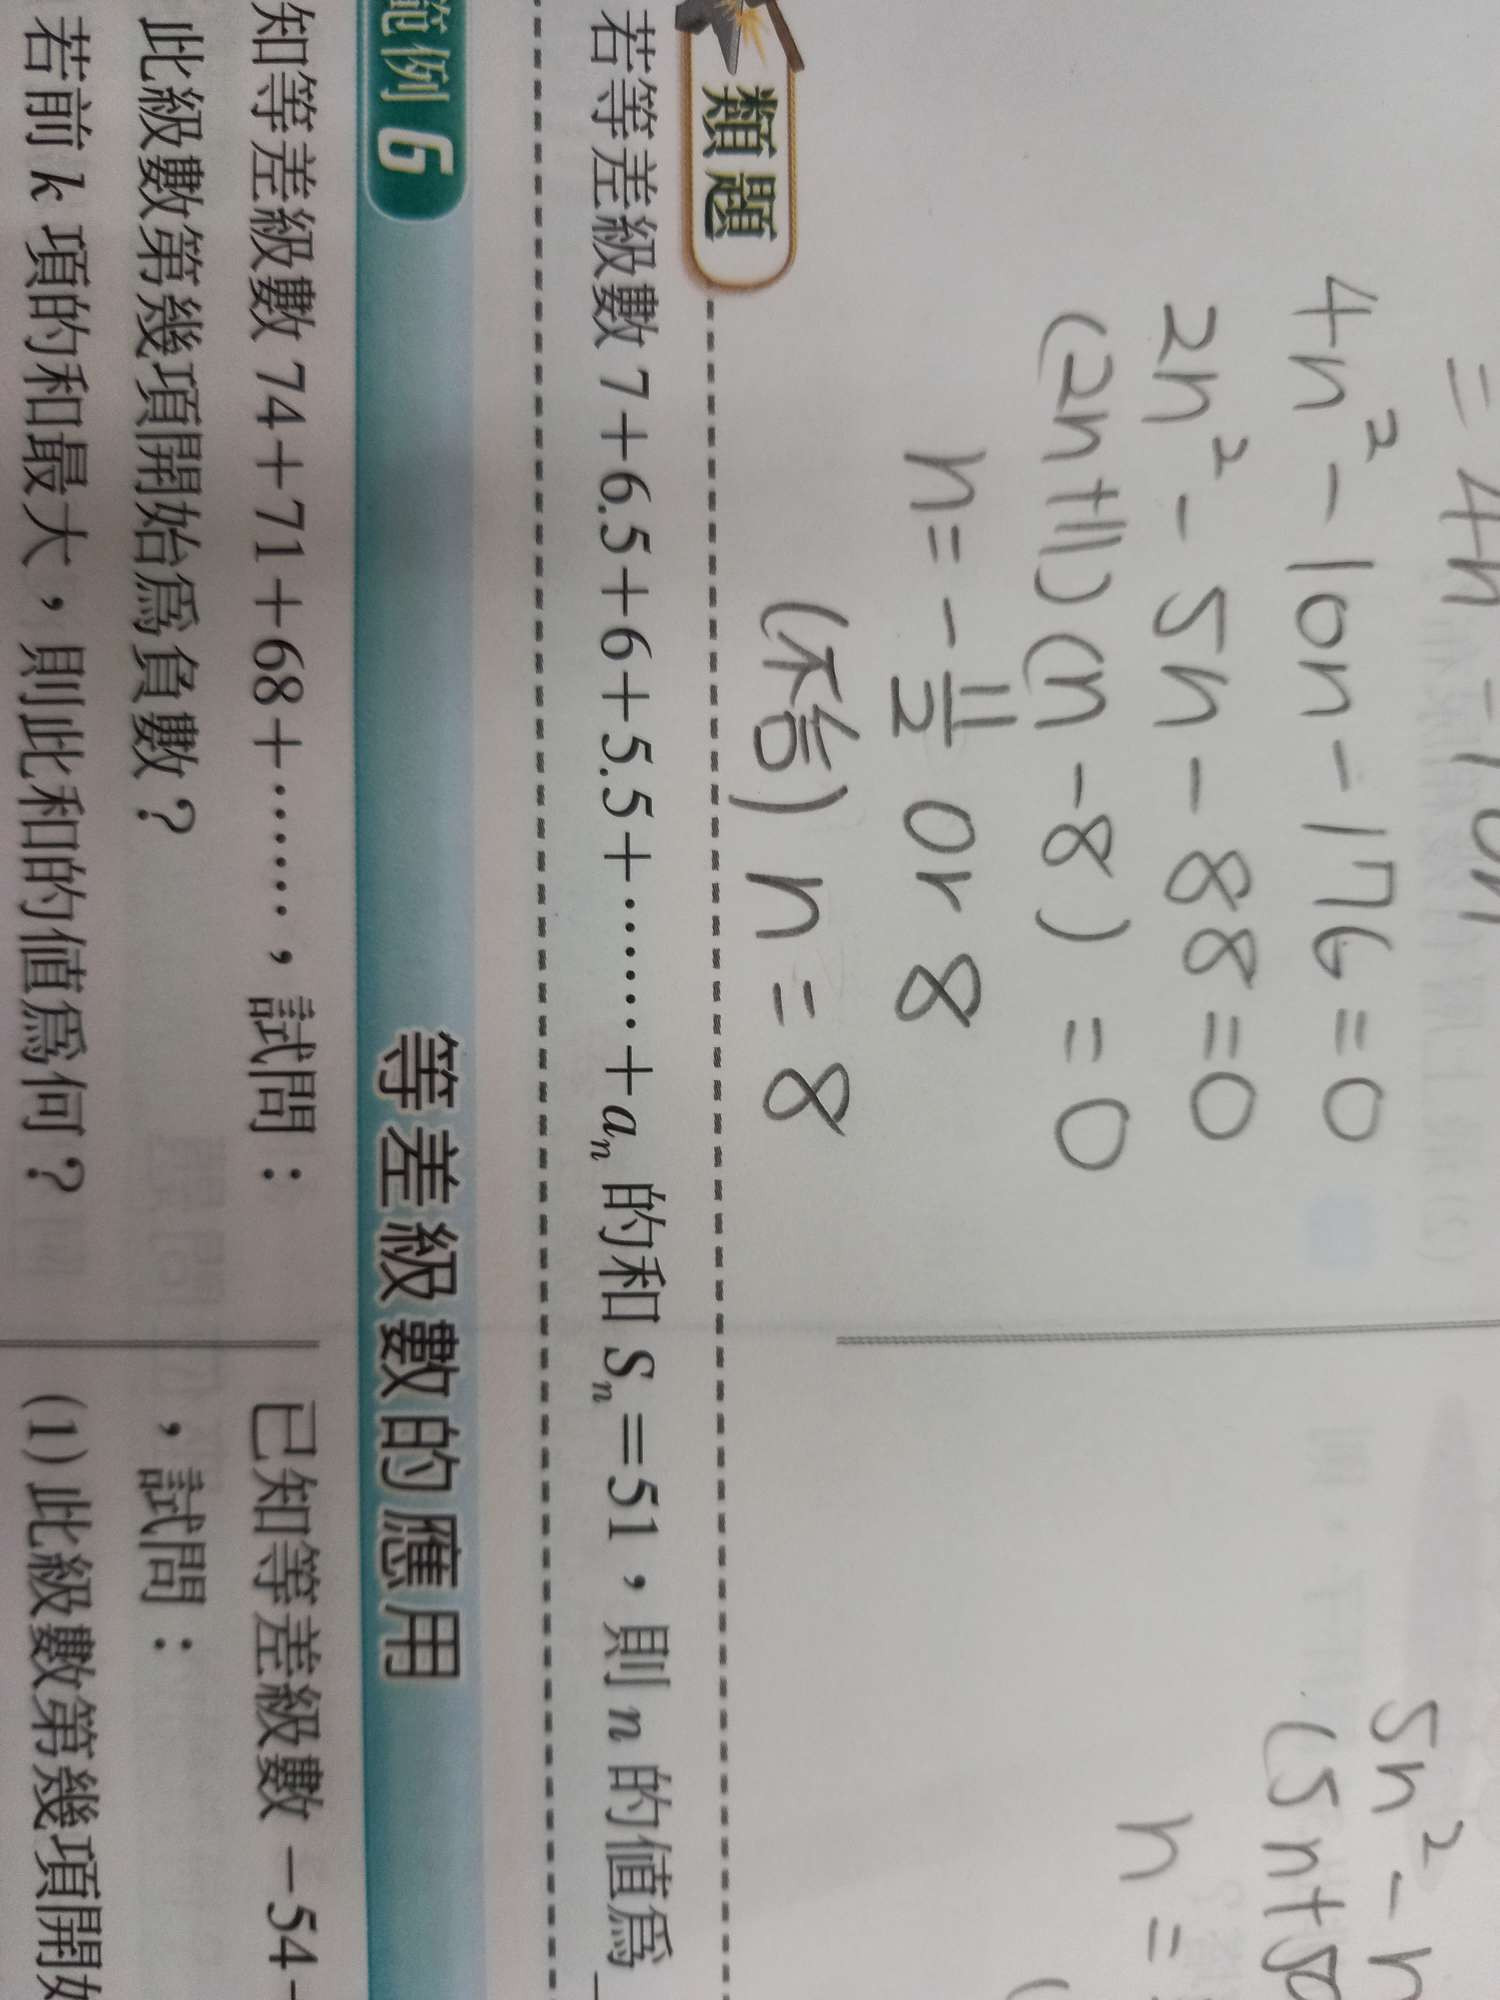 = 4n - 10n
4n² - 10n - 176 = 0
2n² - 5n - 88 = 0
(2n+11)(n-8) = 0
n = -11/2 or 8
(不合) n = 8
5n² - n
(5n+8
n =
類題
若等差級數 7+6.5+6+5.5+……+aₙ 的和 Sₙ=51,則 n 的值為
範例 6 等差級數的應用
知等差級數 74+71+68+……,試問:
此級數第幾項開始為負數?
若前 k 項的和最大,則此和的值為何?
已知等差級數 -54-
,試問:
(1) 此級數第幾項開始